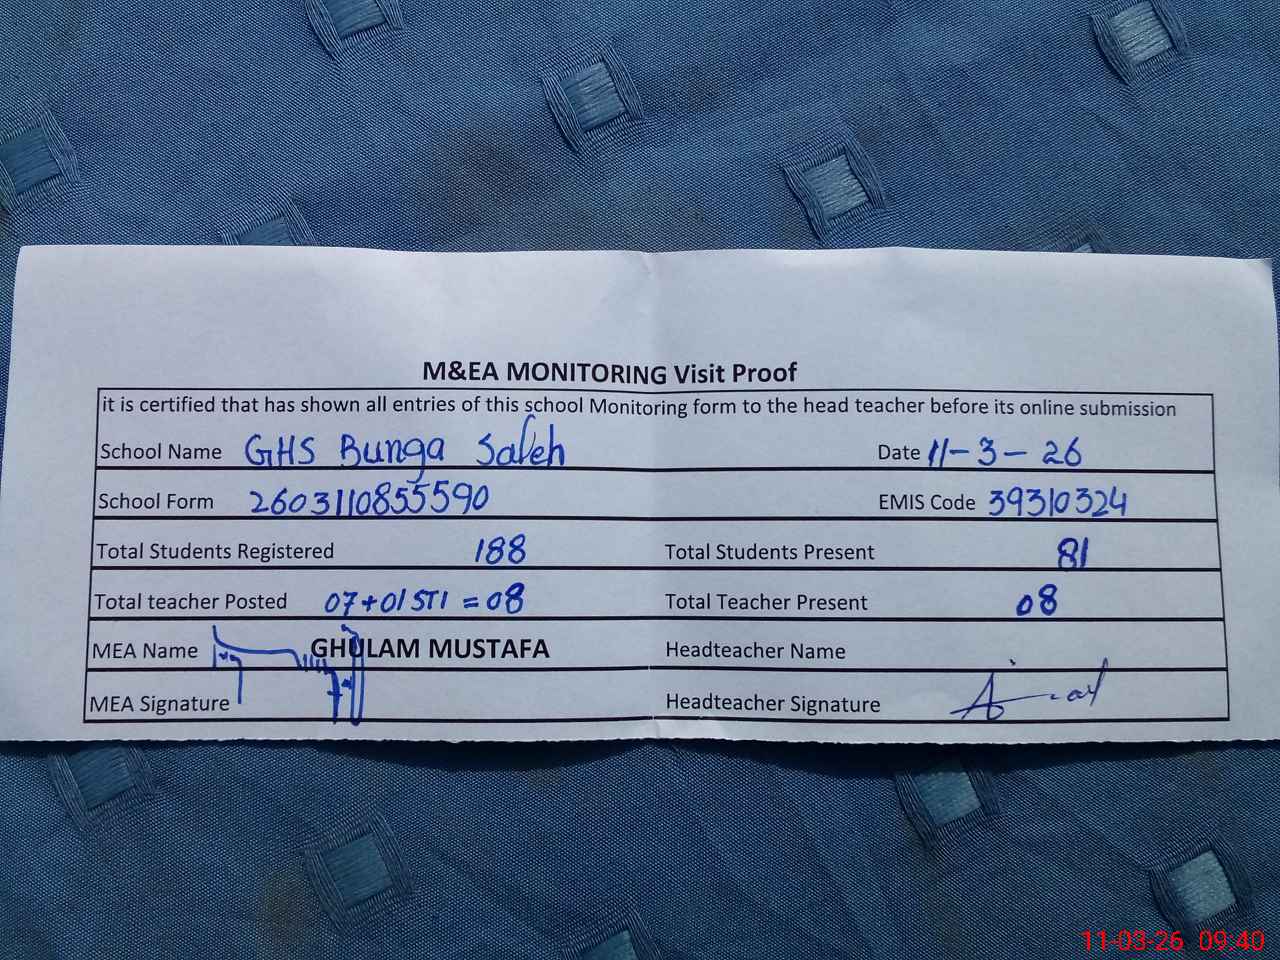 M&EA MONITORING Visit Proof
it is certified that has shown all entries of this school Monitoring form to the head teacher before its online submission
School Name GHS Bunga Saleh Date 11-3-26
School Form 2603110855590 EMIS Code 39310324
Total Students Registered 188 Total Students Present 81
Total teacher Posted 07+01 STI = 08 Total Teacher Present 08
MEA Name GHULAM MUSTAFA Headteacher Name
MEA Signature Headteacher Signature
11-03-26 09:40